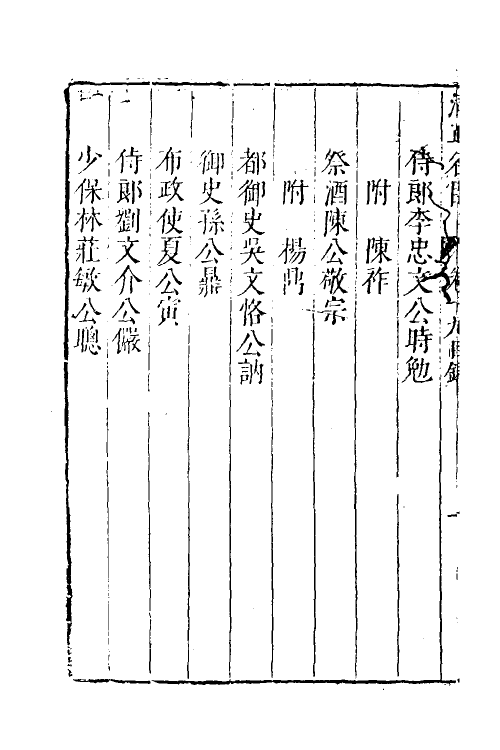 侍郎李忠文公時勉
附 陳祚
祭酒陳公敬宗
附 楊鼎
都御史吳文恪公訥
御史孫公鼎
布政使夏公寅
侍郎劉文介公儼
少保林莊敏公聰